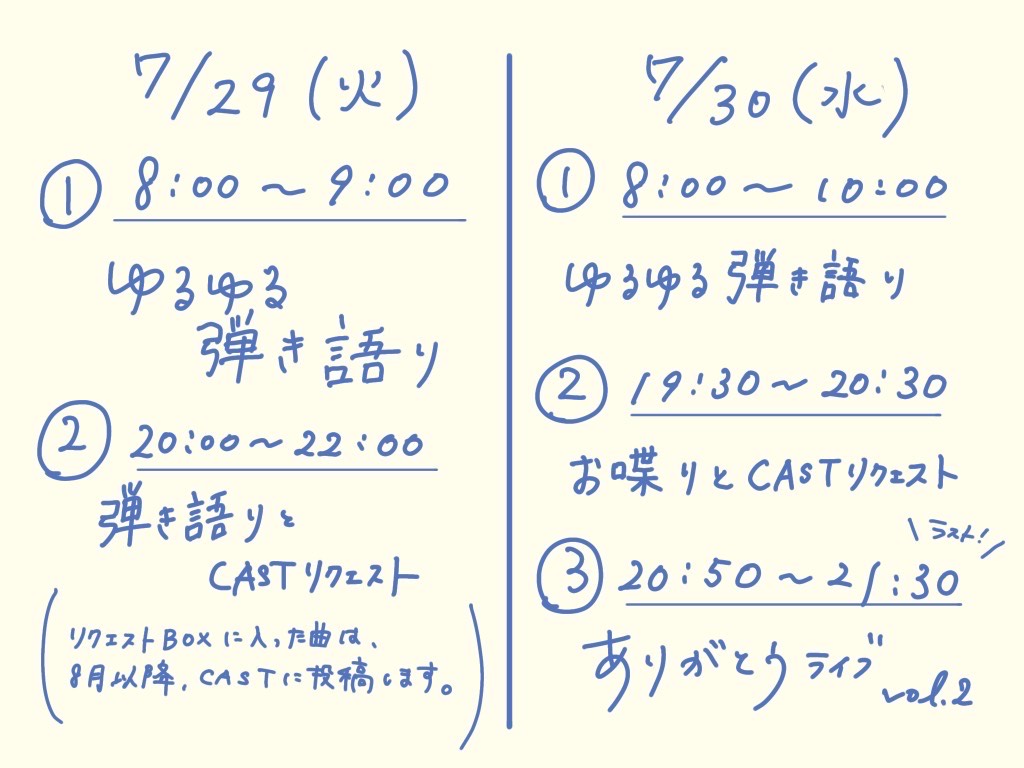 7/29(火)
① 8:00〜9:00
ゆるゆる
弾き語り
② 20:00〜22:00
弾き語りと
CASTリクエスト
(リクエストBOXに入った曲は、
8月以降、CASTに投稿します。)
7/30(水)
① 8:00〜10:00
ゆるゆる弾き語り
② 19:30〜20:30
お喋りとCASTリクエスト
\ラスト!/
③ 20:50〜21:30
ありがとうライブ
vol.2